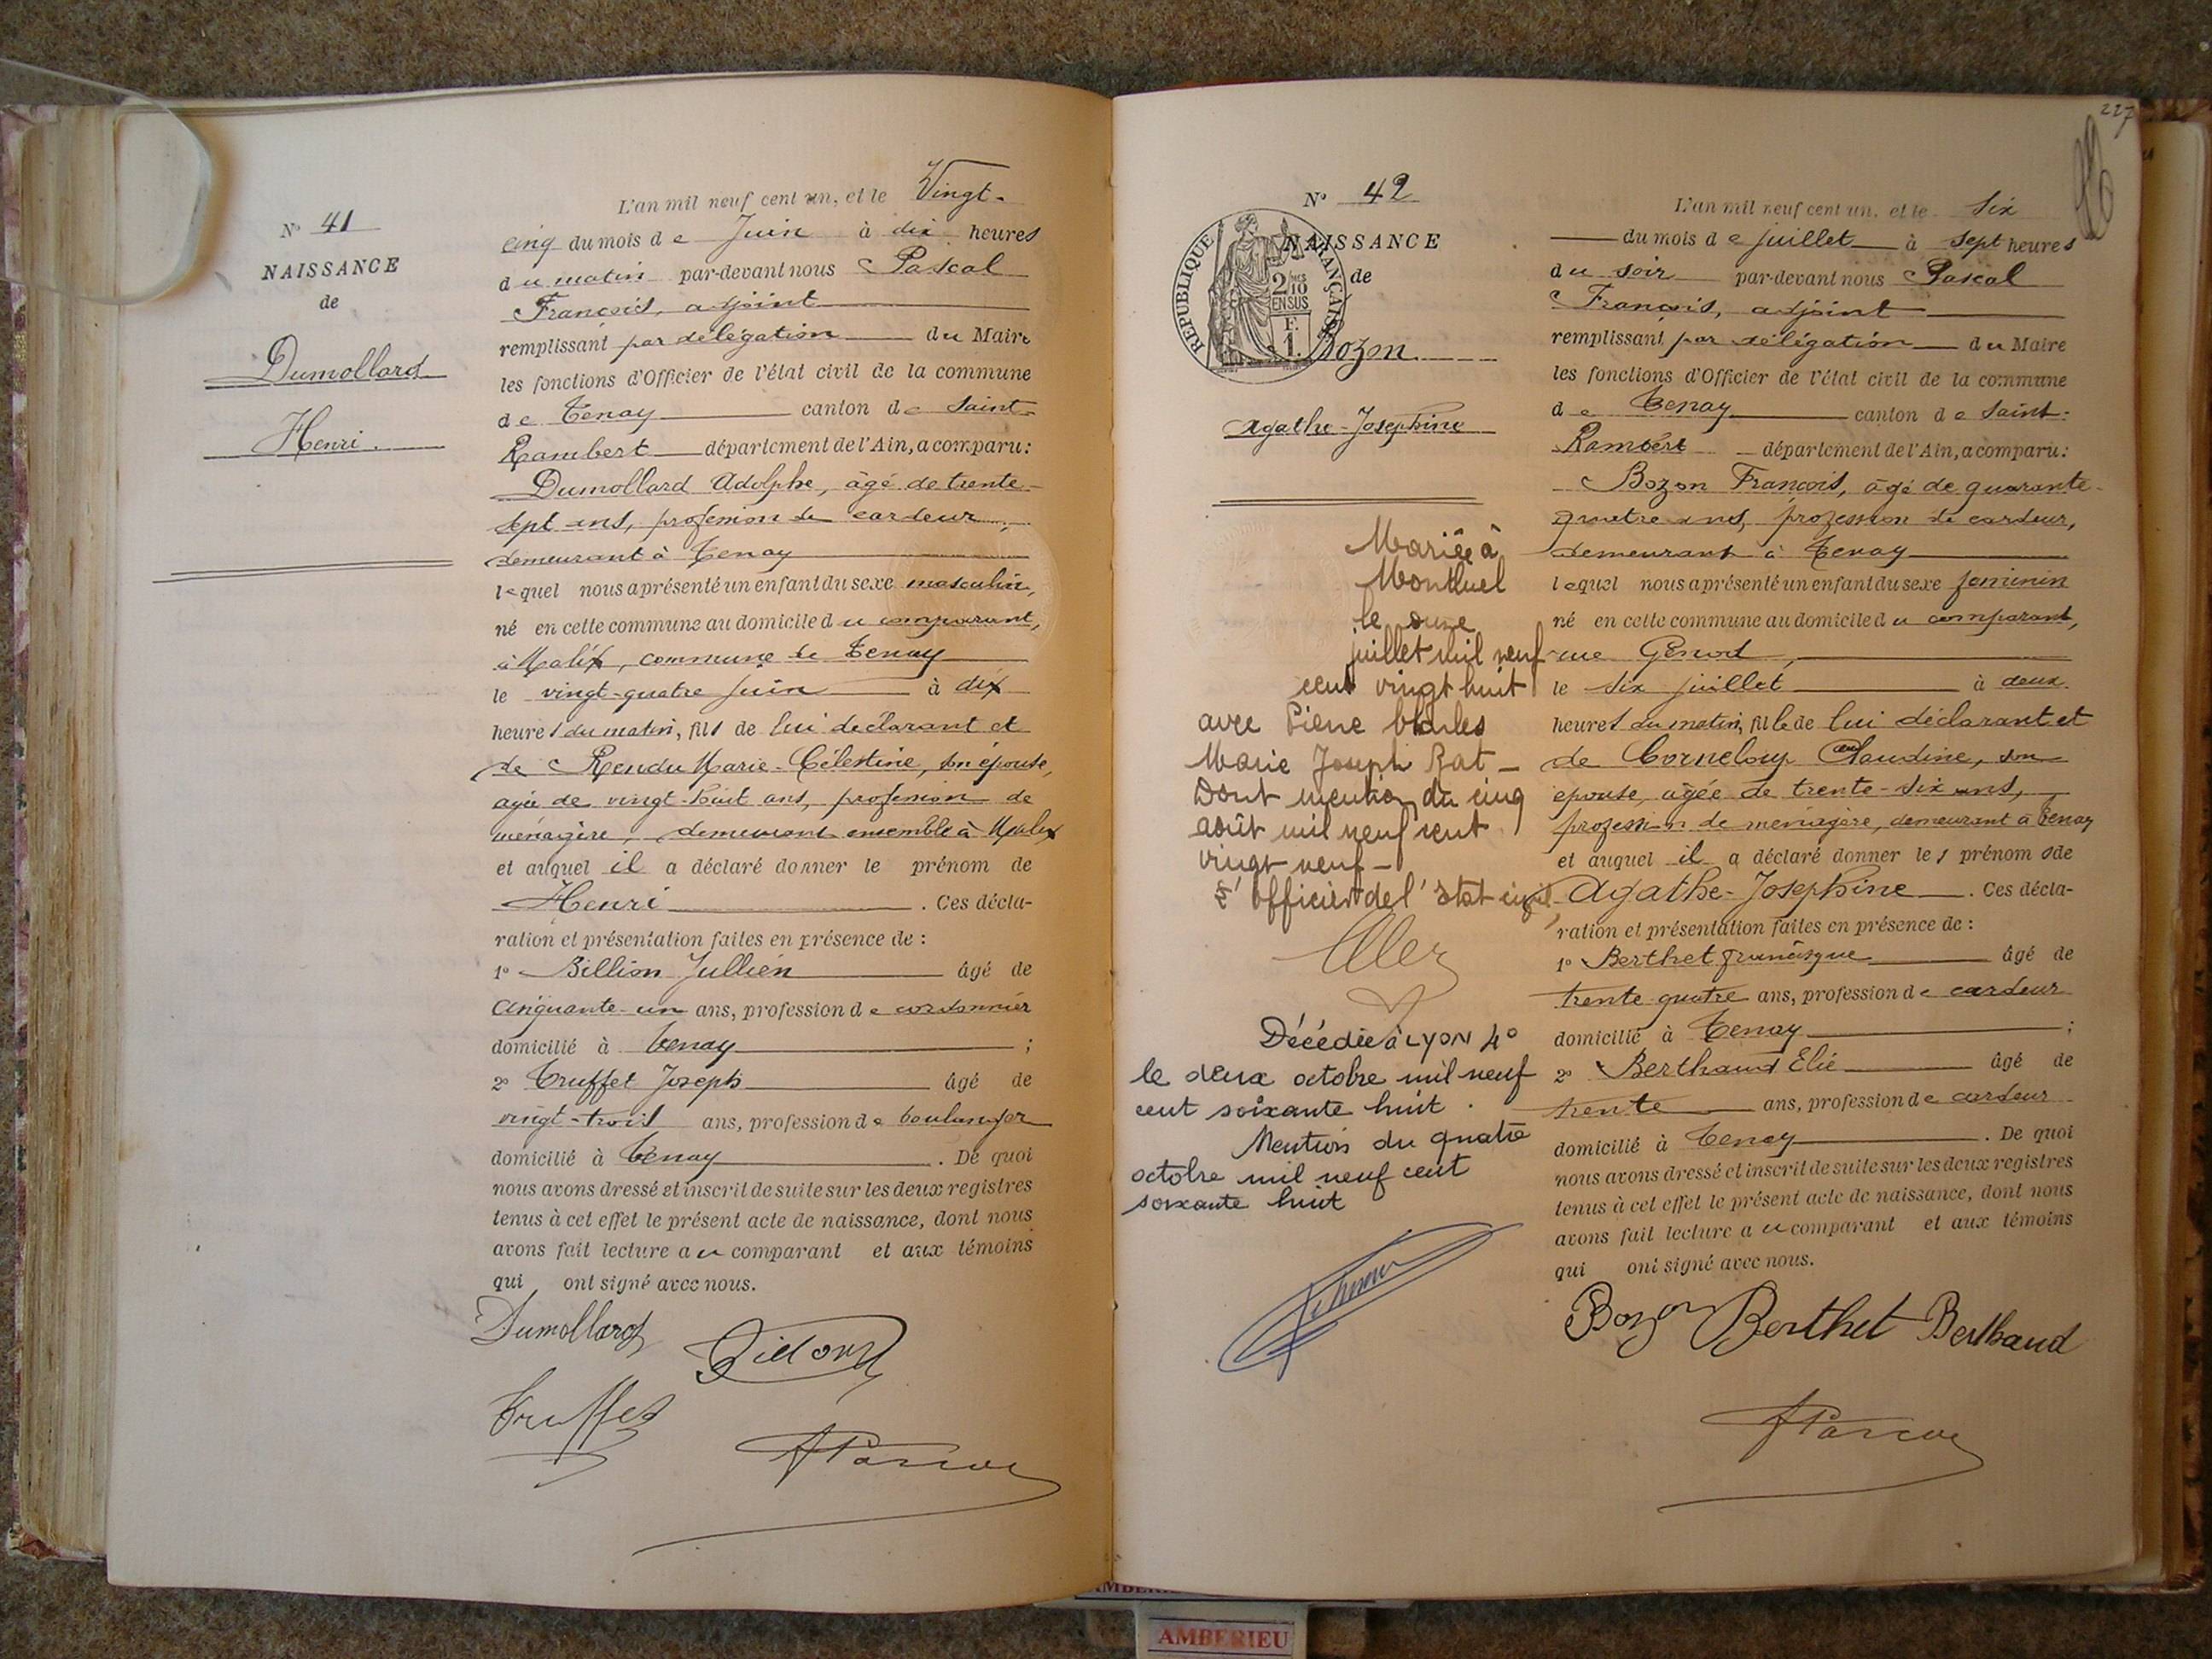 N° 41
NAISSANCE
de
Dumollard
Henri.
L'an mil neuf cent un, et le Vingt-
cinq du mois de Juin à dix heures
du matin par-devant nous Pascal
François, adjoint
remplissant par délégation du Maire
les fonctions d'Officier de l'état civil de la commune
de Tenay canton de Saint-
Rambert département de l'Ain, a comparu:
Dumollard Adolphe, âgé de trente-
sept ans, profession de cardeur,
demeurant à Tenay
lequel nous a présenté un enfant du sexe masculin,
né en cette commune au domicile du comparant,
à Malix, commune de Tenay
le vingt-quatre Juin à dix
heures du matin, fils de lui déclarant et
de Rendu Marie-Célestine, son épouse,
agée de vingt-huit ans, profession de
ménagère, demeurant ensemble à Malix
et auquel il a déclaré donner le prénom de
Henri . Ces décla-
ration et présentation faites en présence de :
1° Billion Jullien âgé de
cinquante-un ans, profession de cordonnier
domicilié à Tenay ;
2° Truffet Joseph âgé de
vingt-trois ans, profession de boulanger
domicilié à Tenay . De quoi
nous avons dressé et inscrit de suite sur les deux registres
tenus à cet effet le présent acte de naissance, dont nous
avons fait lecture au comparant et aux témoins
qui ont signé avec nous.
Dumollard
Truffet
227
N° 42
REPUBLIQUE FRANÇAISE
2/10 EN SUS
F. 1.
NAISSANCE
de
Bozon
Agathe-Josephine
Mariée à
Montluel
le onze
juillet mil neuf
cent vingt huit
avec Pierre Charles
Marie Joseph Rat -
Dont mention du cinq
août mil neuf cent
vingt neuf -
L'officier de l'Etat civil,
Décédée à LYON 4°
le deux octobre mil neuf
cent soixante huit.
Mention du quatre
octobre mil neuf cent
soixante huit
L'an mil neuf cent un, et le Six
du mois de juillet à sept heures
du soir par-devant nous Pascal
François, adjoint
remplissant par délégation du Maire
les fonctions d'Officier de l'état civil de la commune
de Tenay canton de Saint-
Rambert département de l'Ain, a comparu:
Bozon François, âgé de quarante-
quatre ans, profession de cardeur,
demeurant à Tenay
lequel nous a présenté un enfant du sexe feminin
né en cette commune au domicile du comparant,
rue Génod,
le six juillet à deux
heures du matin, fille de lui déclarant et
de Corneloup Claudine, son
épouse, âgée de trente-six ans,
profession de ménagère, demeurant à Tenay
et auquel il a déclaré donner les prénoms de
Agathe-Josephine . Ces décla-
ration et présentation faites en présence de :
1° Berthet françisque âgé de
trente quatre ans, profession de cardeur
domicilié à Tenay ;
2° Berthaud Elie âgé de
trente ans, profession de cardeur
domicilié à Tenay . De quoi
nous avons dressé et inscrit de suite sur les deux registres
tenus à cet effet le présent acte de naissance, dont nous
avons fait lecture au comparant et aux témoins
qui ont signé avec nous.
Bozon Berthet Berthaud
AMBERIEU